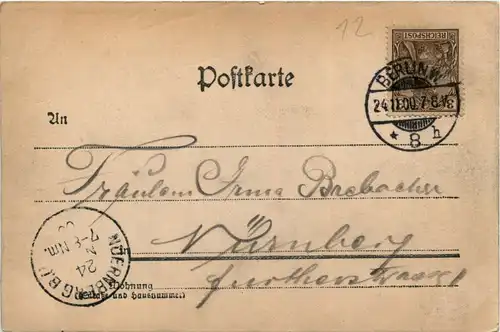 12
REICHSPOST
Postkarte
BERLIN W
24.11.00.7-8.V.
* 8 h
An
Fräulein Irma Brebacher
Nürnberg
Fürtherstrasse
NUERNBERG B.II
24
7-8 Nm.
Wohnung
(Straße und Hausnummer)